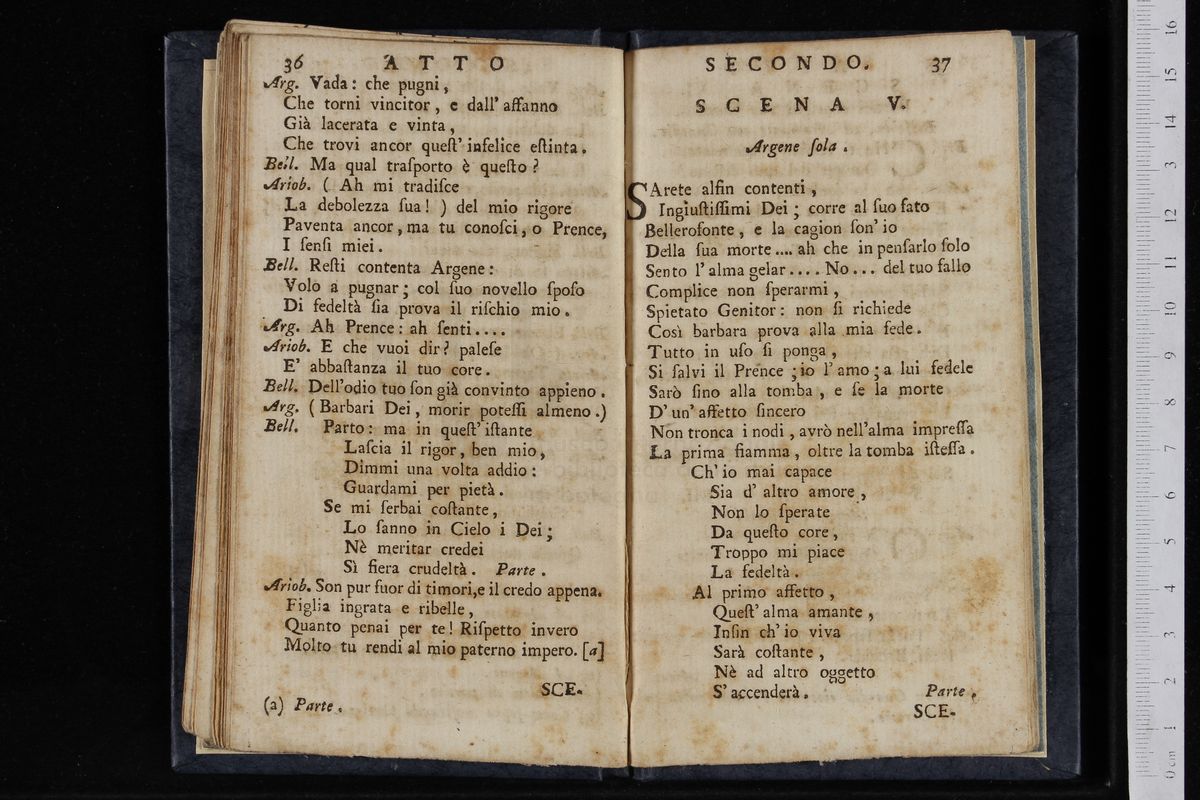 36 ATTO
Arg. Vada: che pugni,
Che torni vincitor, e dall' affanno
Già lacerata e vinta,
Che trovi ancor queſt' infelice eſtinta.
Bell. Ma qual traſporto è queſto?
Ariob. ( Ah mi tradiſce
La debolezza ſua! ) del mio rigore
Paventa ancor, ma tu conoſci, o Prence,
I ſenſi miei.
Bell. Reſti contenta Argene:
Volo a pugnar; col ſuo novello ſpoſo
Di fedeltà ſia prova il riſchio mio.
Arg. Ah Prence: ah ſenti....
Ariob. E che vuoi dir? paleſe
E' abbaſtanza il tuo core.
Bell. Dell'odio tuo ſon già convinto appieno.
Arg. ( Barbari Dei, morir poteſſi almeno.)
Bell. Parto: ma in queſt' iſtante
Laſcia il rigor, ben mio,
Dimmi una volta addio:
Guardami per pietà.
Se mi ſerbai coſtante,
Lo ſanno in Cielo i Dei;
Nè meritar credei
Sì fiera crudeltà. Parte.
Ariob. Son pur fuor di timori,e il credo appena.
Figlia ingrata e ribelle,
Quanto penai per te! Riſpetto invero
Molto tu rendi al mio paterno impero. [a]
SCE-
(a) Parte.
SECONDO. 37
SCENA V.
Argene ſola.
SArete alfin contenti,
Ingiuſtiſſimi Dei; corre al ſuo fato
Bellerofonte, e la cagion ſon' io
Della ſua morte.... ah che in penſarlo ſolo
Sento l' alma gelar.... No... del tuo fallo
Complice non ſperarmi,
Spietato Genitor: non ſi richiede
Così barbara prova alla mia fede.
Tutto in uſo ſi ponga,
Si ſalvi il Prence; io l' amo; a lui fedele
Sarò fino alla tomba, e ſe la morte
D' un' affetto ſincero
Non tronca i nodi, avrò nell'alma impreſſa
La prima fiamma, oltre la tomba iſteſſa.
Ch' io mai capace
Sia d' altro amore,
Non lo ſperate
Da queſto core,
Troppo mi piace
La fedeltà.
Al primo affetto,
Queſt' alma amante,
Infin ch' io viva
Sarà coſtante,
Nè ad altro oggetto
S' accenderà. Parte.
SCE-
0 cm 1 2 3 4 5 6 7 8 9 10 11 12 13 14 15 16